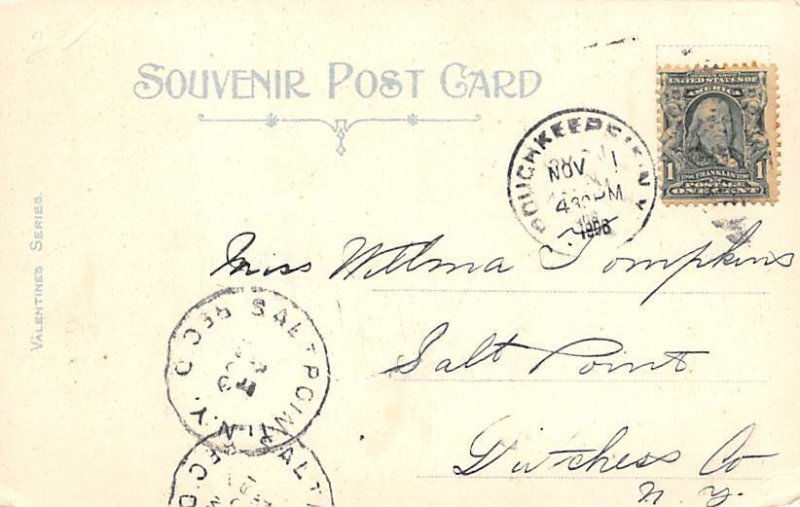 SOUVENIR POST CARD
UNITED STATES OF
AMERICA
1 FRANKLIN 1
POSTAGE
ONE CENT
POUGHKEEPSIE, N.Y.
NOV 1
430 PM
1906
VALENTINE'S SERIES.
Miss Wilma Tompkins
Salt Point
Dutchess Co
N. Y.
SALT POINT N.Y. REC'D
SALT REC'D